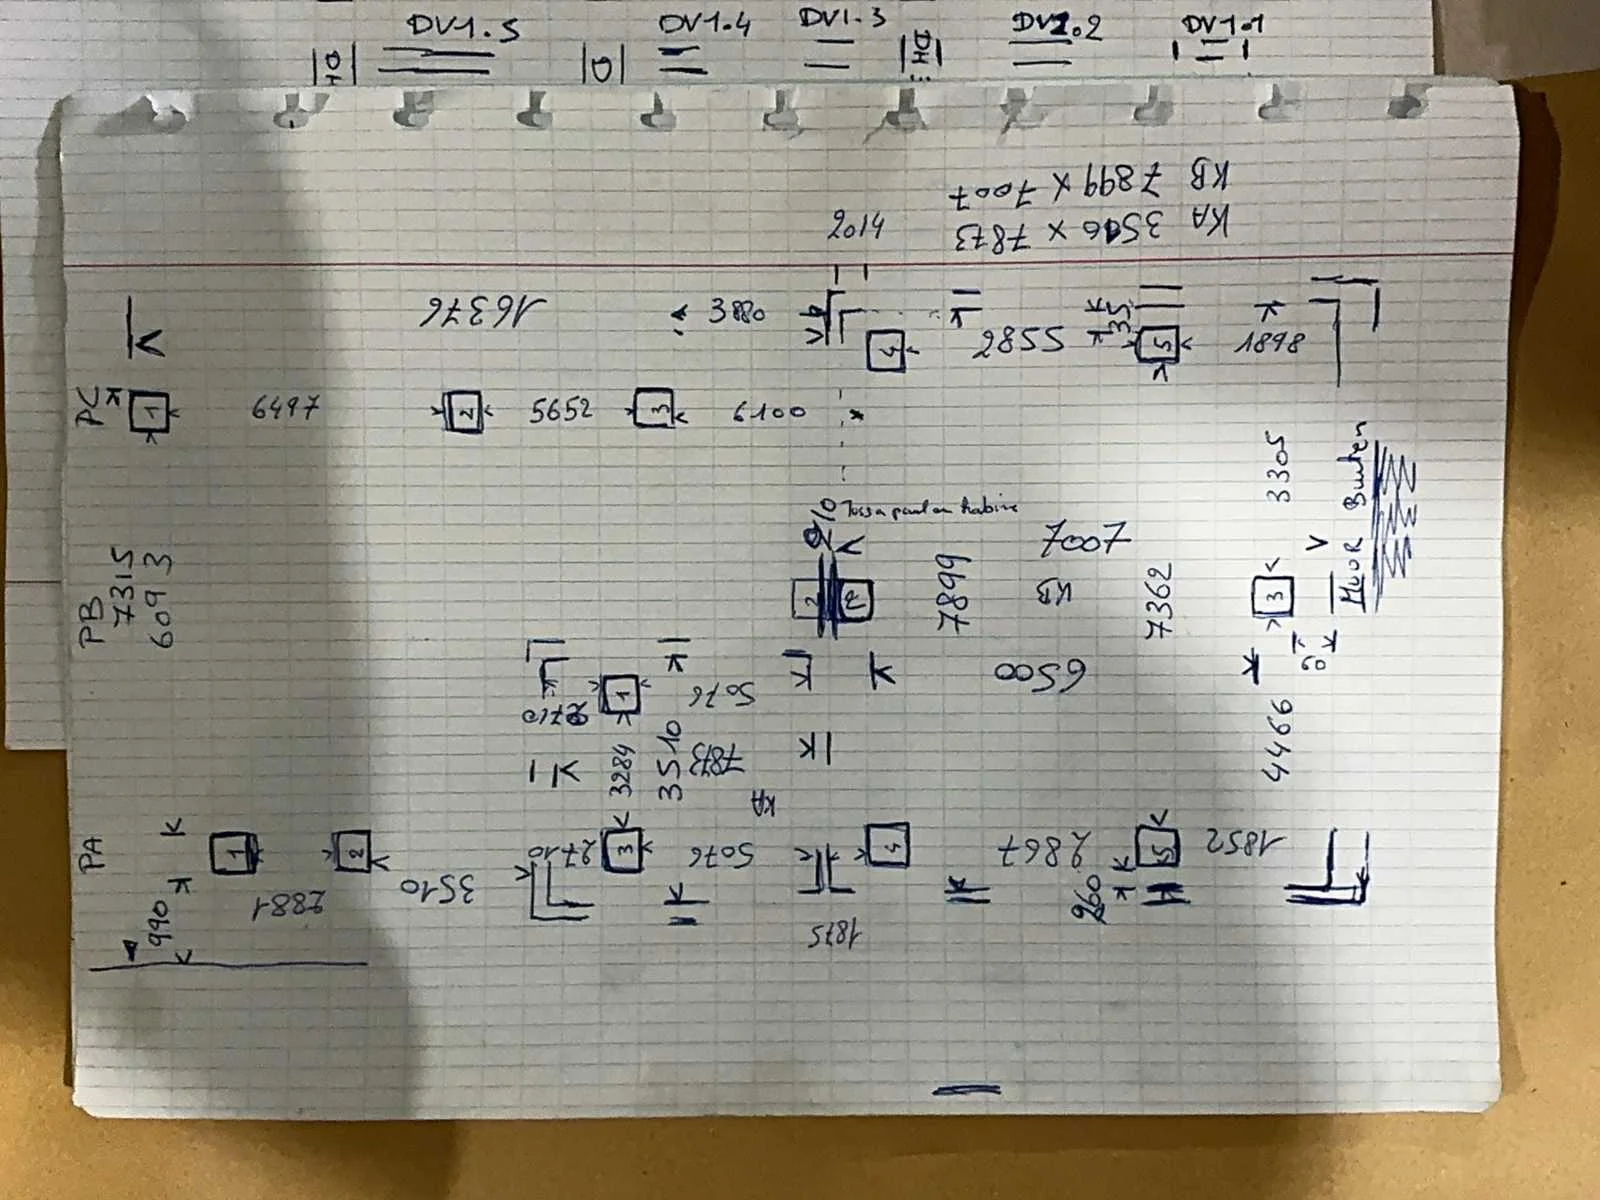 DV1.5 DV1.4 DV1.3 DV1.2 DV1.1
KB 7899 x 7007
KA 3506 x 7873
2014
16376
3880
4
5582
35
5
1898
PC
1
6497
2
5652
3
6100
3305
Muur Buiten
PB
7315
6093
210
7007
2
2
7899
KB
7362
3
6500
1
5076
2710
3284
3510
7873
KA
4466
PA
1
2
3
2710
5076
4
2867
5
1852
990
2881
3510
260
1875